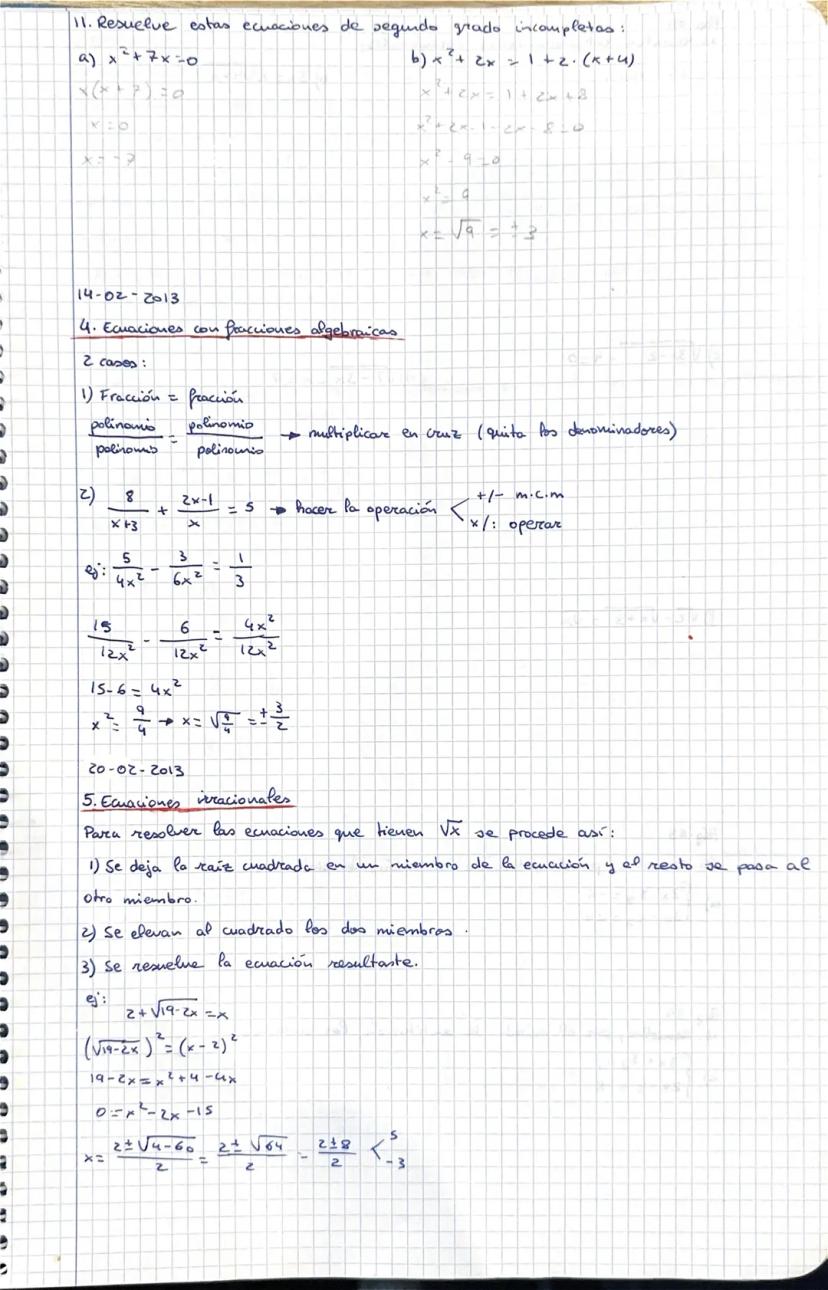 11. Resuelve estas ecuaciones de segundo grado incompletas:
a) x²+7x=0
b) x²+2x=1+2·(x+4)
x(x+7)=0
x²+2x=1+2x+8
x=0
x²+2x-1-2x-8=0
x=-7
x²-9=0
x²=9
x=√9=±3
14-02-2013
4. Ecuaciones con fracciones algebraicas
2 casos:
1) Fracción = fracción
polinomio/polinomio = polinomio/polinomio → multiplicar en cruz (quita los denominadores)
2) 8/(x+3) + (2x-1)/x = 5 → hacer la operación < +/- m.c.m
x/: operar
ej: 5/4x² - 3/6x² = 1/3
15/12x² - 6/12x² = 4x²/12x²
15-6=4x²
x²=9/4 → x=√9/4=±3/2
20-02-2013
5. Ecuaciones irracionales
Para resolver las ecuaciones que tienen √x se procede así:
1) Se deja la raíz cuadrada en un miembro de la ecuación y el resto se pasa al
otro miembro.
2) Se elevan al cuadrado los dos miembros.
3) Se resuelve la ecuación resultante.
ej:
2+√19-2x=x
(√19-2x)²=(x-2)²
19-2x=x²+4-4x
0=x²-2x-15
x=(2±√4-60)/2=(2±√64)/2=(2±8)/2 < 5
-3